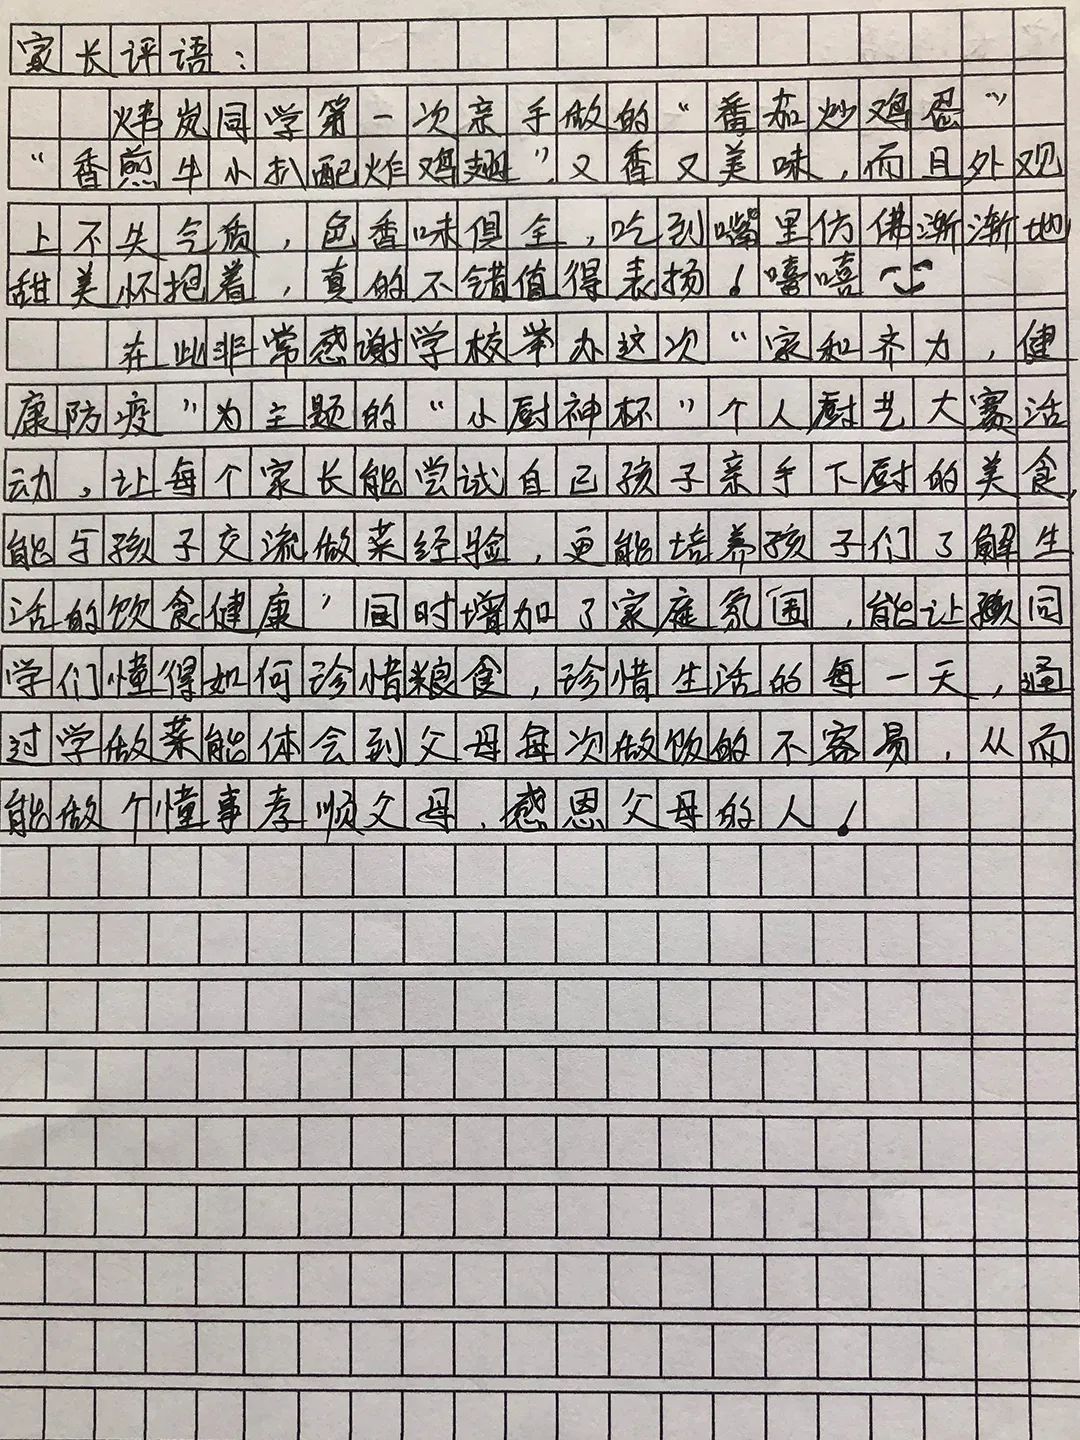 家长评语：
炜岚同学第一次亲手做的“番茄炒鸡蛋”
“香煎牛小扒配炸鸡翅”，又香又美味，而且外观
上不失气质，色香味俱全，吃到嘴里仿佛渐渐地
甜美怀抱着，真的不错值得表扬！嘻嘻
在此非常感谢学校举办这次“家和齐力，健
康防疫”为主题的“小厨神杯”个人厨艺大赛活
动，让每个家长能尝试自己孩子亲手下厨的美食，
能与孩子交流做菜经验，更能培养孩子们了解生
活的饮食健康，同时增加了家庭氛围，能让孩同
学们懂得如何珍惜粮食，珍惜生活的每一天，通
过学做菜能体会到父母每次做饭的不容易，从而
能做个懂事孝顺父母、感恩父母的人！